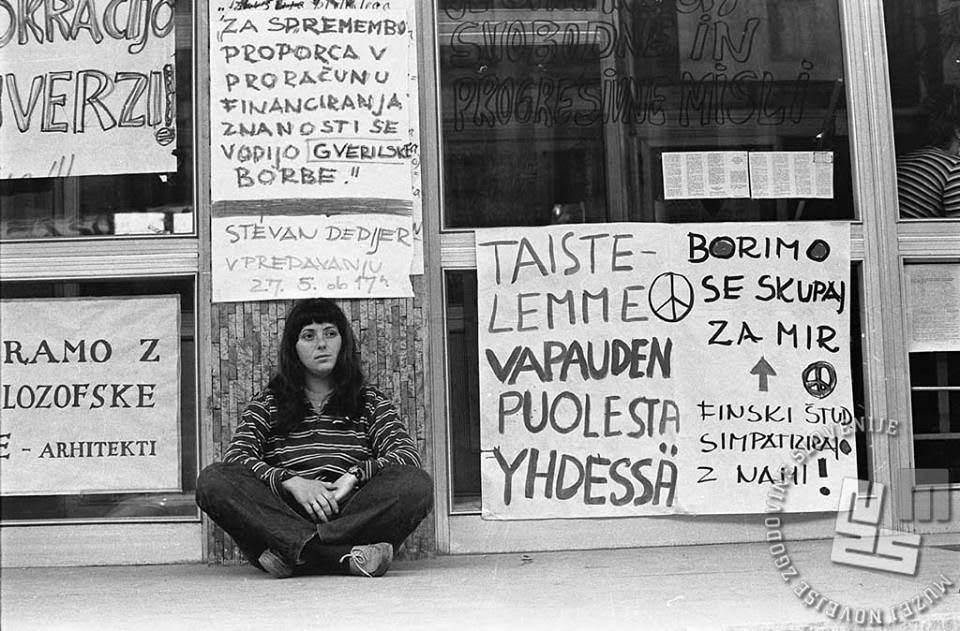 UNIVERZI!
"ZA SPREMEMBO
PROPORCA V
PRORAČUNU
FINANCIRANJA
ZNANOSTI SE
VODIJO GVERILSKE
BORBE."
STEVAN DEDIJER
V PREDAVANJU
27. 5. ob 17h
SVOBODNE IN
PROGRESIVNE MISLI
RAMO Z
LOZOFSKE
E - ARHITEKTI
TAISTE-
LEMME
VAPAUDEN
PUOLESTA
YHDESSÄ
BORIMO
SE SKUPAJ
ZA MIR
FINSKI ŠTUD
SIMPATIZIRAJO
Z NAMI!
MUZEJ NOVEJŠE ZGODOVINE SLOVENIJE